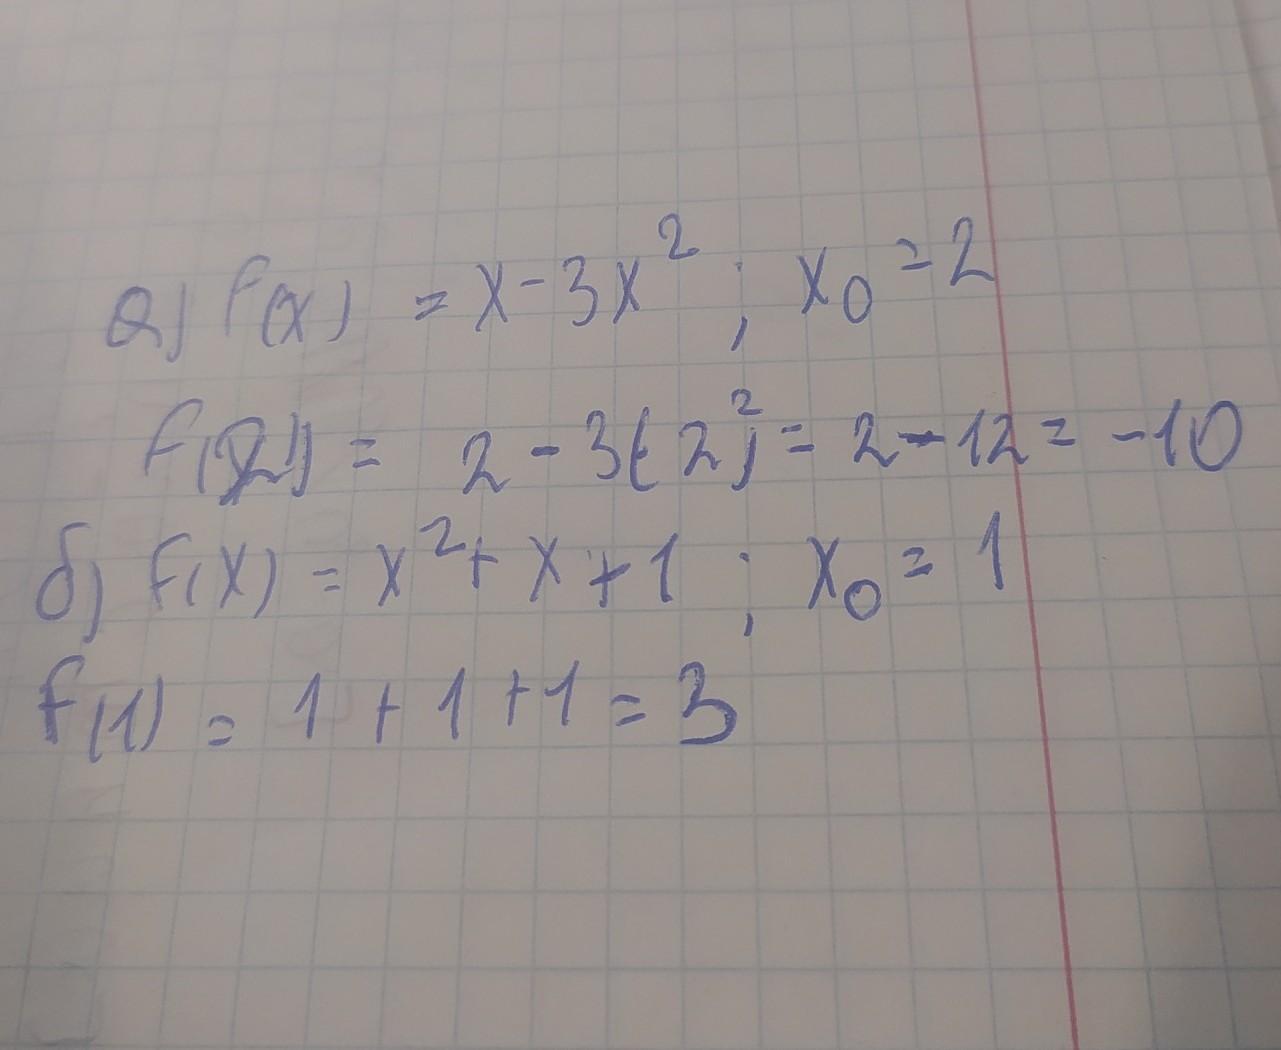 а) f(x) = x - 3x² ; x₀ = 2
f(2) = 2 - 3(2)² = 2 - 12 = -10
б) f(x) = x² + x + 1 ; x₀ = 1
f(1) = 1 + 1 + 1 = 3